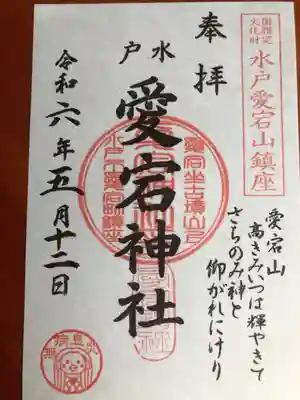 奉拝
国指定
文化財
水戸愛宕山鎮座
水戸
愛宕神社
愛宕山
高きみいつは輝やきて
さちのみ神と
仰がれにけり
令和六年五月十二日